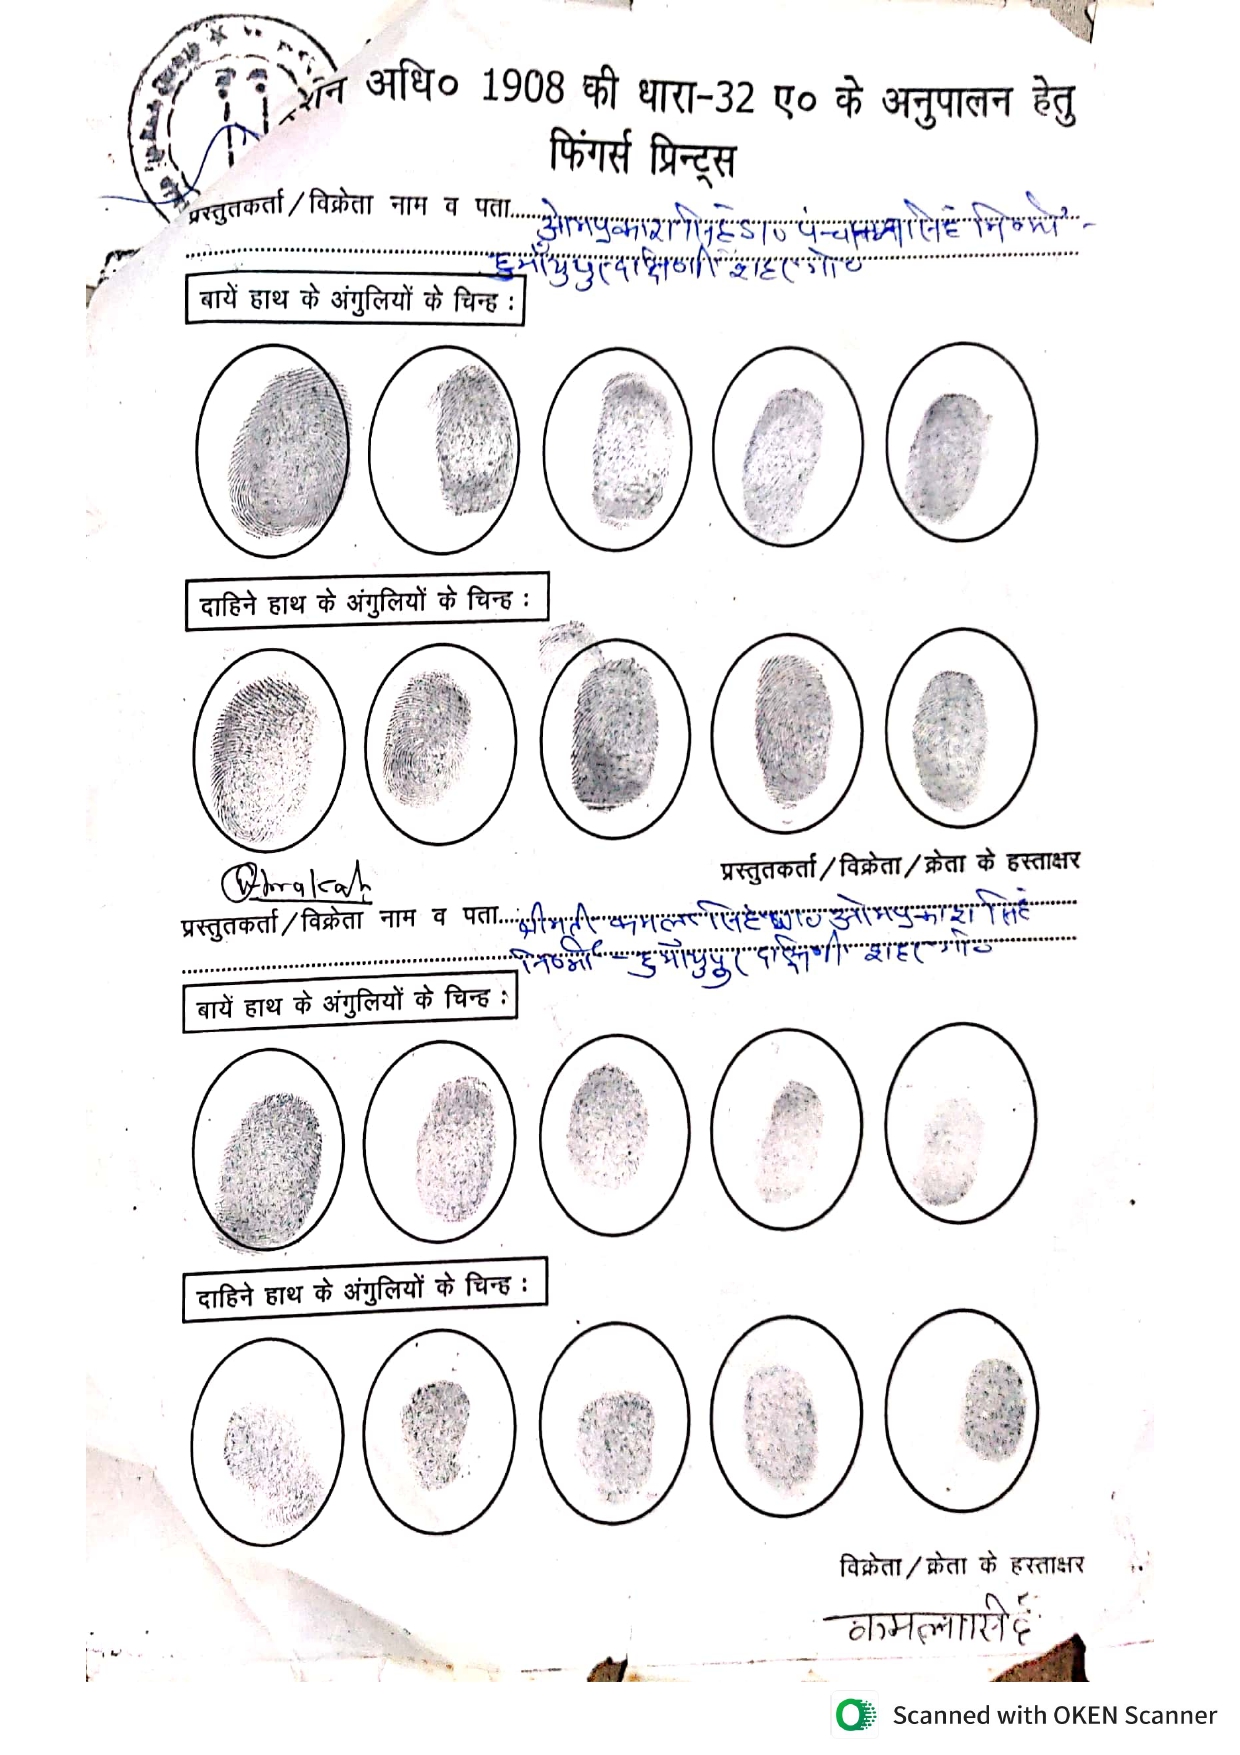 शन अधि० 1908 की धारा-32 ए० के अनुपालन हेतु
फिंगर्स प्रिन्ट्स
प्रस्तुतकर्ता/विक्रेता नाम व पता ओमप्रकाश सिंह S/० पंचम सिंह
हुमाँयुपुर दक्षिणी शहर गो०
बायें हाथ के अंगुलियों के चिन्ह :
दाहिने हाथ के अंगुलियों के चिन्ह :
प्रस्तुतकर्ता/विक्रेता/क्रेता के हस्ताक्षर
प्रस्तुतकर्ता/विक्रेता नाम व पता श्रीमती कमला सिंह ओमप्रकाश सिंह
हुमाँयुपुर दक्षिणी शहर गो०
बायें हाथ के अंगुलियों के चिन्ह :
दाहिने हाथ के अंगुलियों के चिन्ह :
विक्रेता/क्रेता के हस्ताक्षर
कमला सिंह
Scanned with OKEN Scanner